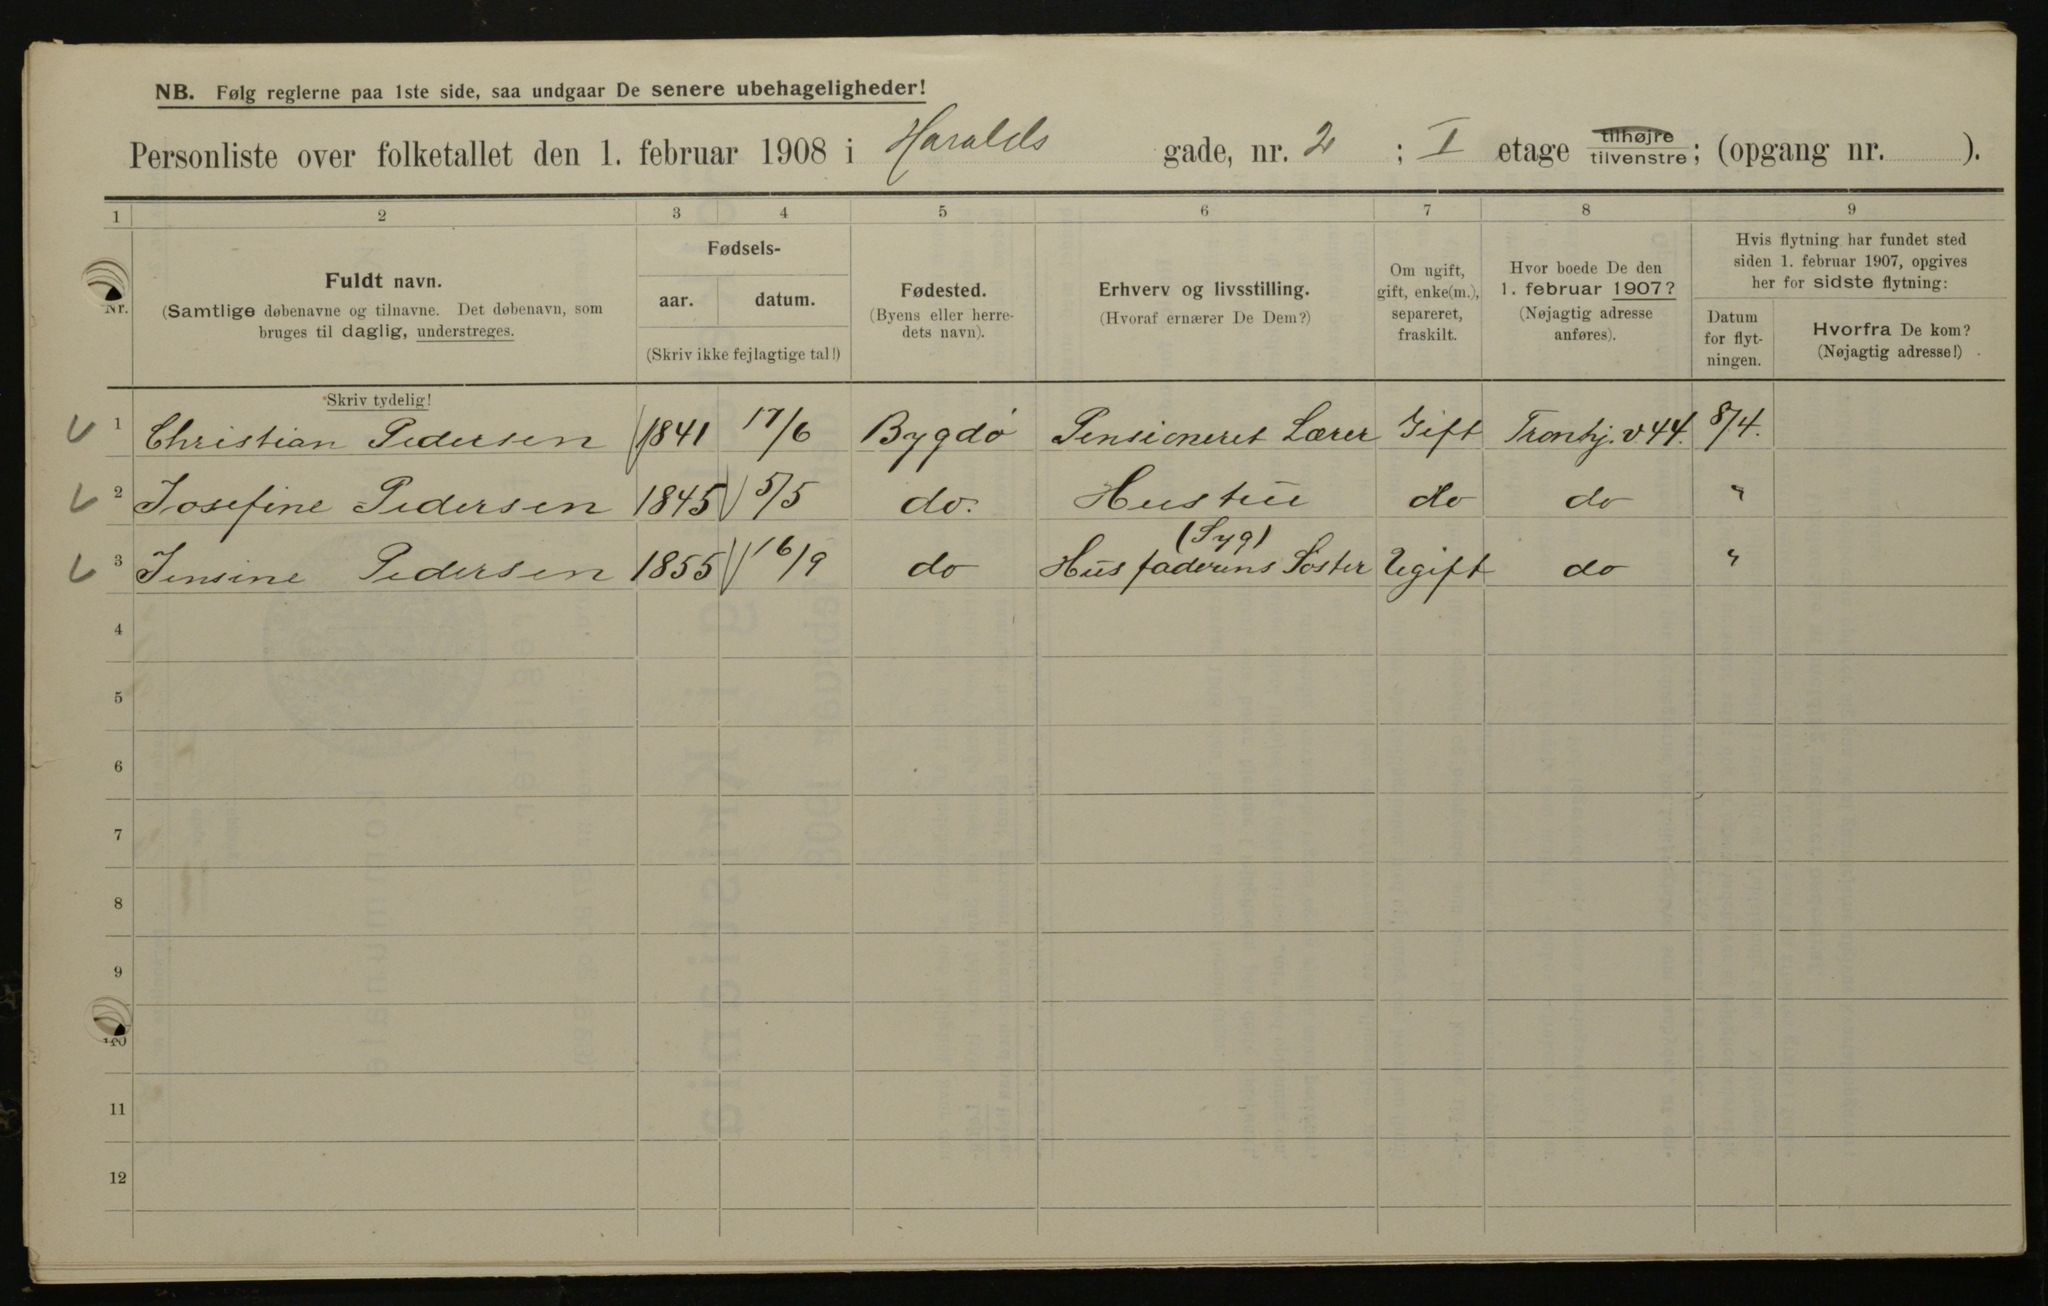 NB. Følg reglerne paa 1ste side, saa undgaar De senere ubehageligheder!
Personliste over folketallet den 1. februar 1908 i Haralds gade, nr. 2 ; I etage tilhøjre tilvenstre; (opgang nr. ).
1 2 3 4 5 6 7 8 9
Nr.
Fuldt navn.
(Samtlige døbenavne og tilnavne. Det døbenavn, som
bruges til daglig, understreges.
Fødsels-
aar. datum.
(Skriv ikke fejlagtige tal!)
Fødested.
(Byens eller herre-
dets navn).
Erhverv og livsstilling.
(Hvoraf ernærer De Dem?)
Om ugift,
gift, enke(m.),
separeret,
fraskilt.
Hvor boede De den
1. februar 1907?
(Nøjagtig adresse
anføres).
Hvis flytning har fundet sted
siden 1. februar 1907, opgives
her for sidste flytning:
Datum
for flyt-
ningen.
Hvorfra De kom?
(Nøjagtig adresse!)
Skriv tydelig!
1 Christian Pedersen 1841 17/6 Bygdö Pensioneret Lærer Gift Trontj. v 44. 8/4.
2 Josefine Pedersen 1845 5/5 do. Hustru do do "
(Syg)
3 Jensine Pedersen 1855 16/9 do Husfaderens Söster Ugift do "
4
5
6
7
8
9
10
11
12